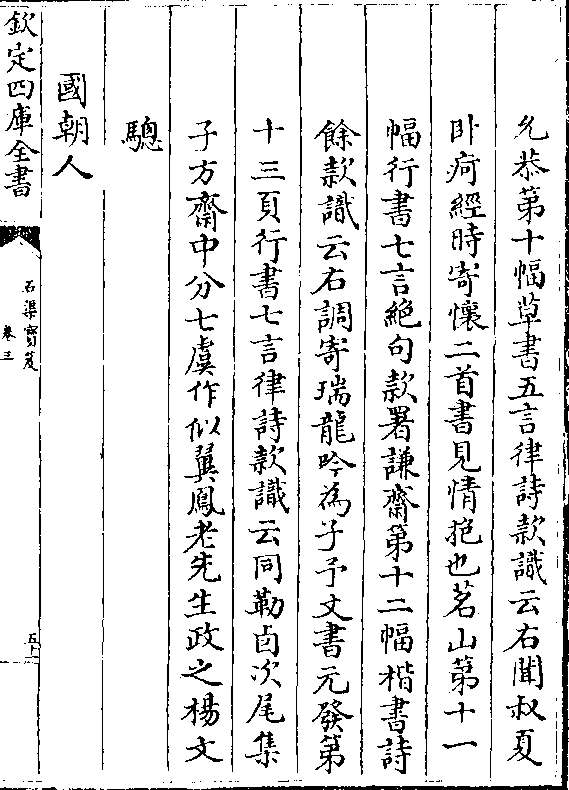 允恭第十幅草書五言律詩款識云右聞叔夏
卧疴經時寄懷二首書見情抱也茗山第十一
幅行書七言絶句款署謙齋第十二幅楷書詩
餘款識云右調寄瑞龍吟為子予文書元發第
十三頁行書七言律詩款識云同勒卣次尾集
子方齋中分七虞作似翼鳳老先生政之楊文
驄
國朝人
欽定四庫全書
石渠寶笈
卷三